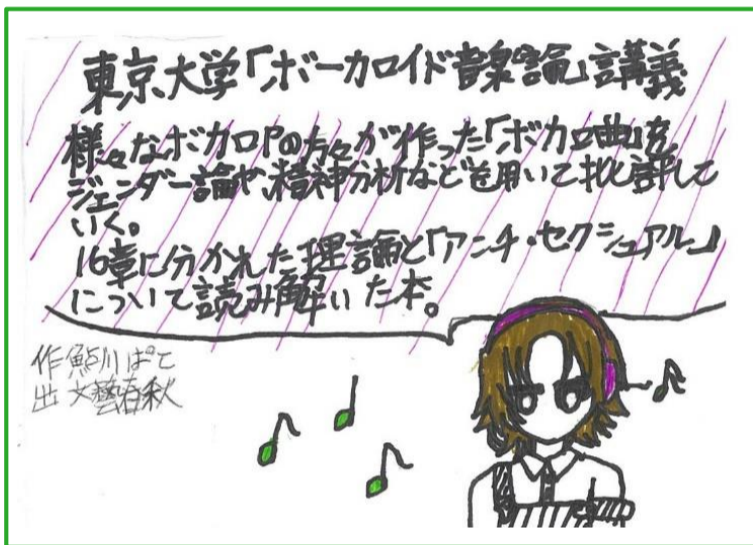 東京大学「ボーカロイド音楽論」講義
様々なボカロPの方々が作った「ボカロ曲」を
ジェンダー論や、精神分析などを用いて批評して
いく。
16章に分かれた理論と「アンチ・セクシュアル」
について読み解いた本。
作 鮎川ぱて
出 文藝春秋